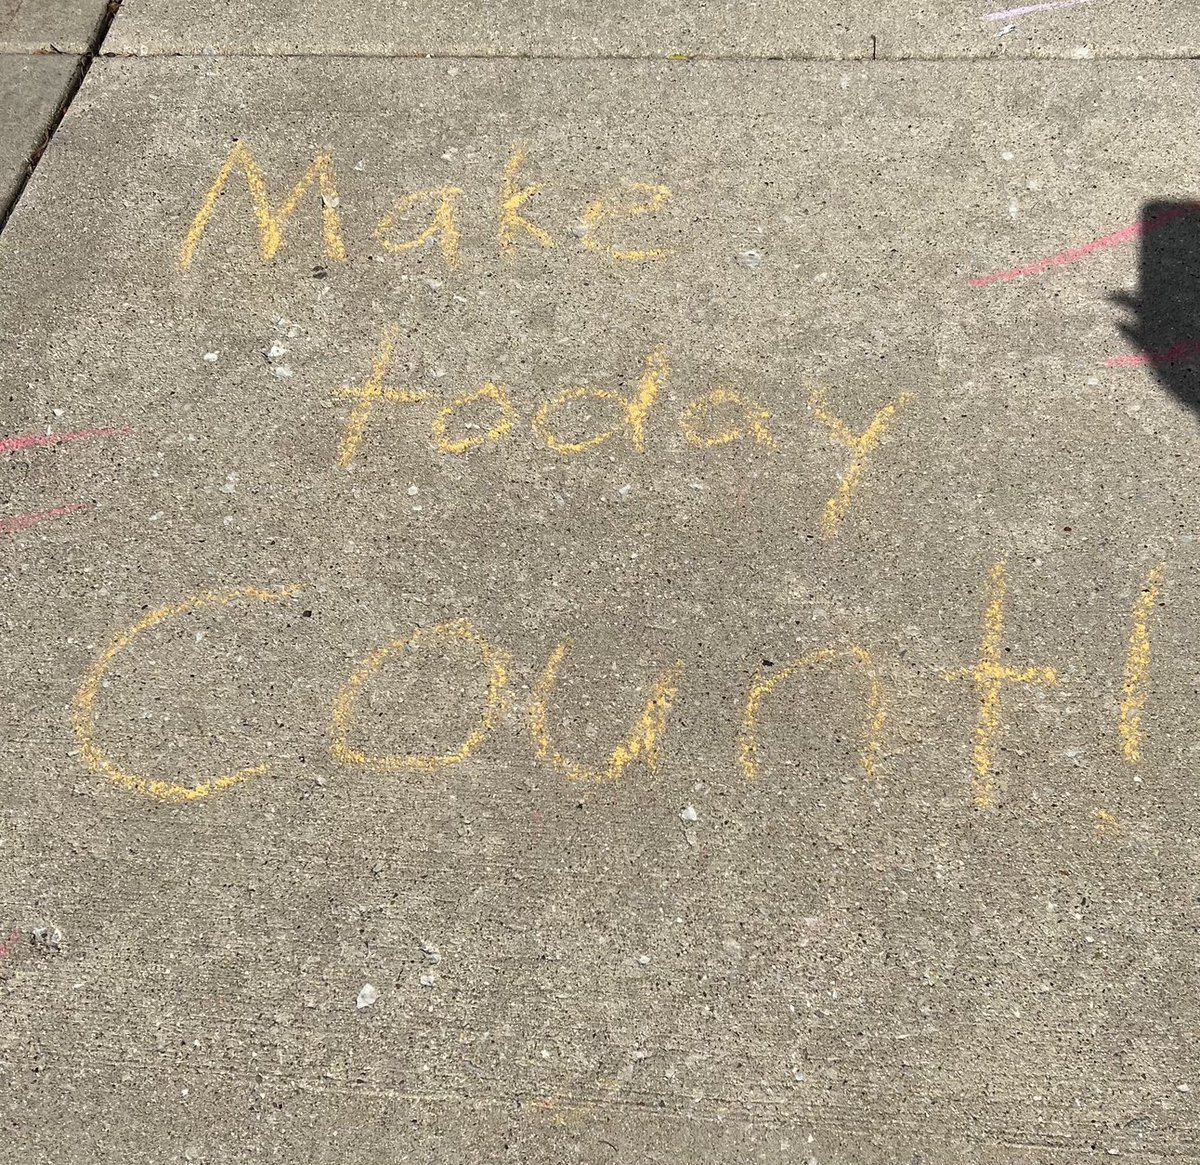 Make
today
Count!